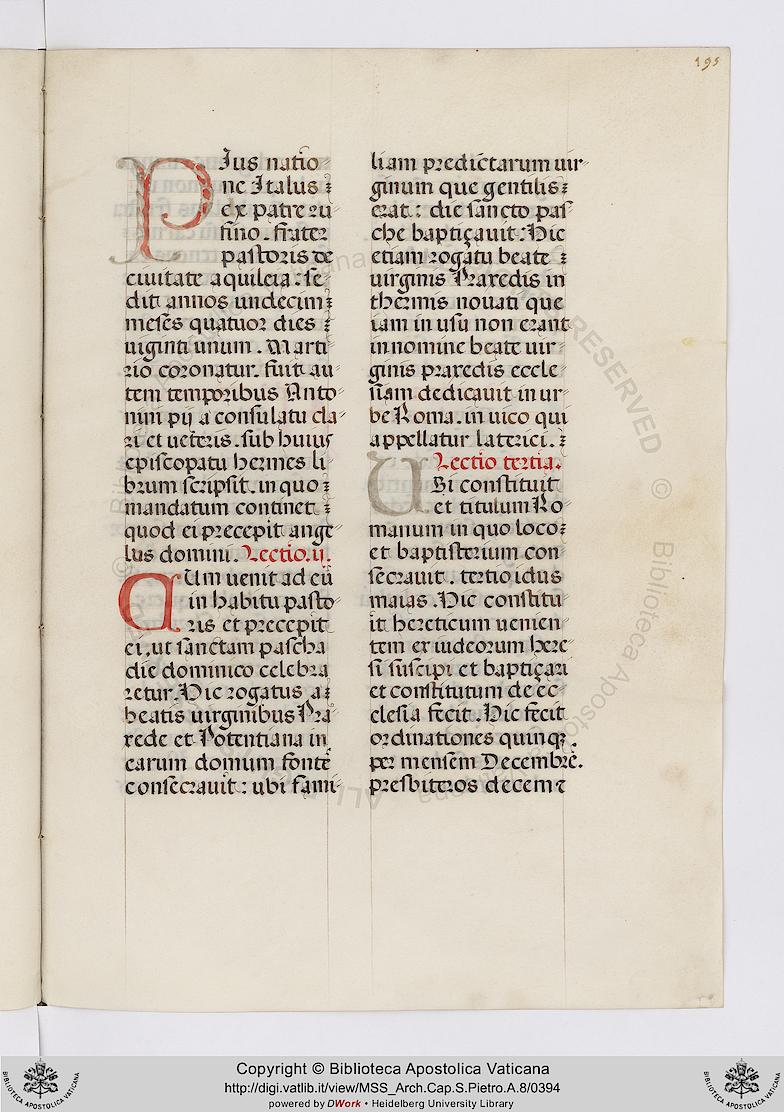 195
Pius natio
ne Italus :
ex patre ru
fino. frater
pastoris de
civitate aquileia : se
dit annos undecim :
meses quatuor dies :
uiginti unum. Marti
rio coronatur. fuit au
tem temporibus Anto
nini pij a consulatu cla
ri et ueteris. sub huius
episcopatu hermes li
brum scripsit. in quo :
mandatum continet :
quod ei precepit ange
lus domini. Lectio.ij.
Cum uenit ad eū
in habitu pasto
ris et precepit
ei, ut sanctam pascha
die dominico celebra
retur. Hic rogatus a :
beatis uirginibus Pra
xede et Potentiana in
earum domum fontē
consecrauit : ubi fami
liam predictarum uir
ginum que gentilis :
erat : die sancto pas
che baptiçauit : Hic
etiam rogatu beate :
uirginis Praxedis in
thermis nouati que
iam in usu non erant
in nomine beate uir
ginis praxedis eccle
siam dedicauit in ur
be Roma. in uico qui
appellatur laterici. :
Lectio tertia.
Ubi constituit
et titulum Ro
manum in quo loco :
et baptisterium con
secrauit. tertio idus
maias. Hic constitu
it hereticum uenien
tem ex iudeorum here
si suscipi et baptiçari
et constitutum de ec
clesia fecit. Hic fecit
ordinationes quinqȝ.
per mensem Decembrē.
presbiteros decem ⁊
BIBLIOTECA APOSTOLICA VATICANA
Copyright © Biblioteca Apostolica Vaticana
http://digi.vatlib.it/view/MSS_Arch.Cap.S.Pietro.A.8/0394
powered by DWork • Heidelberg University Library
BIBLIOTECA APOSTOLICA VATICANA